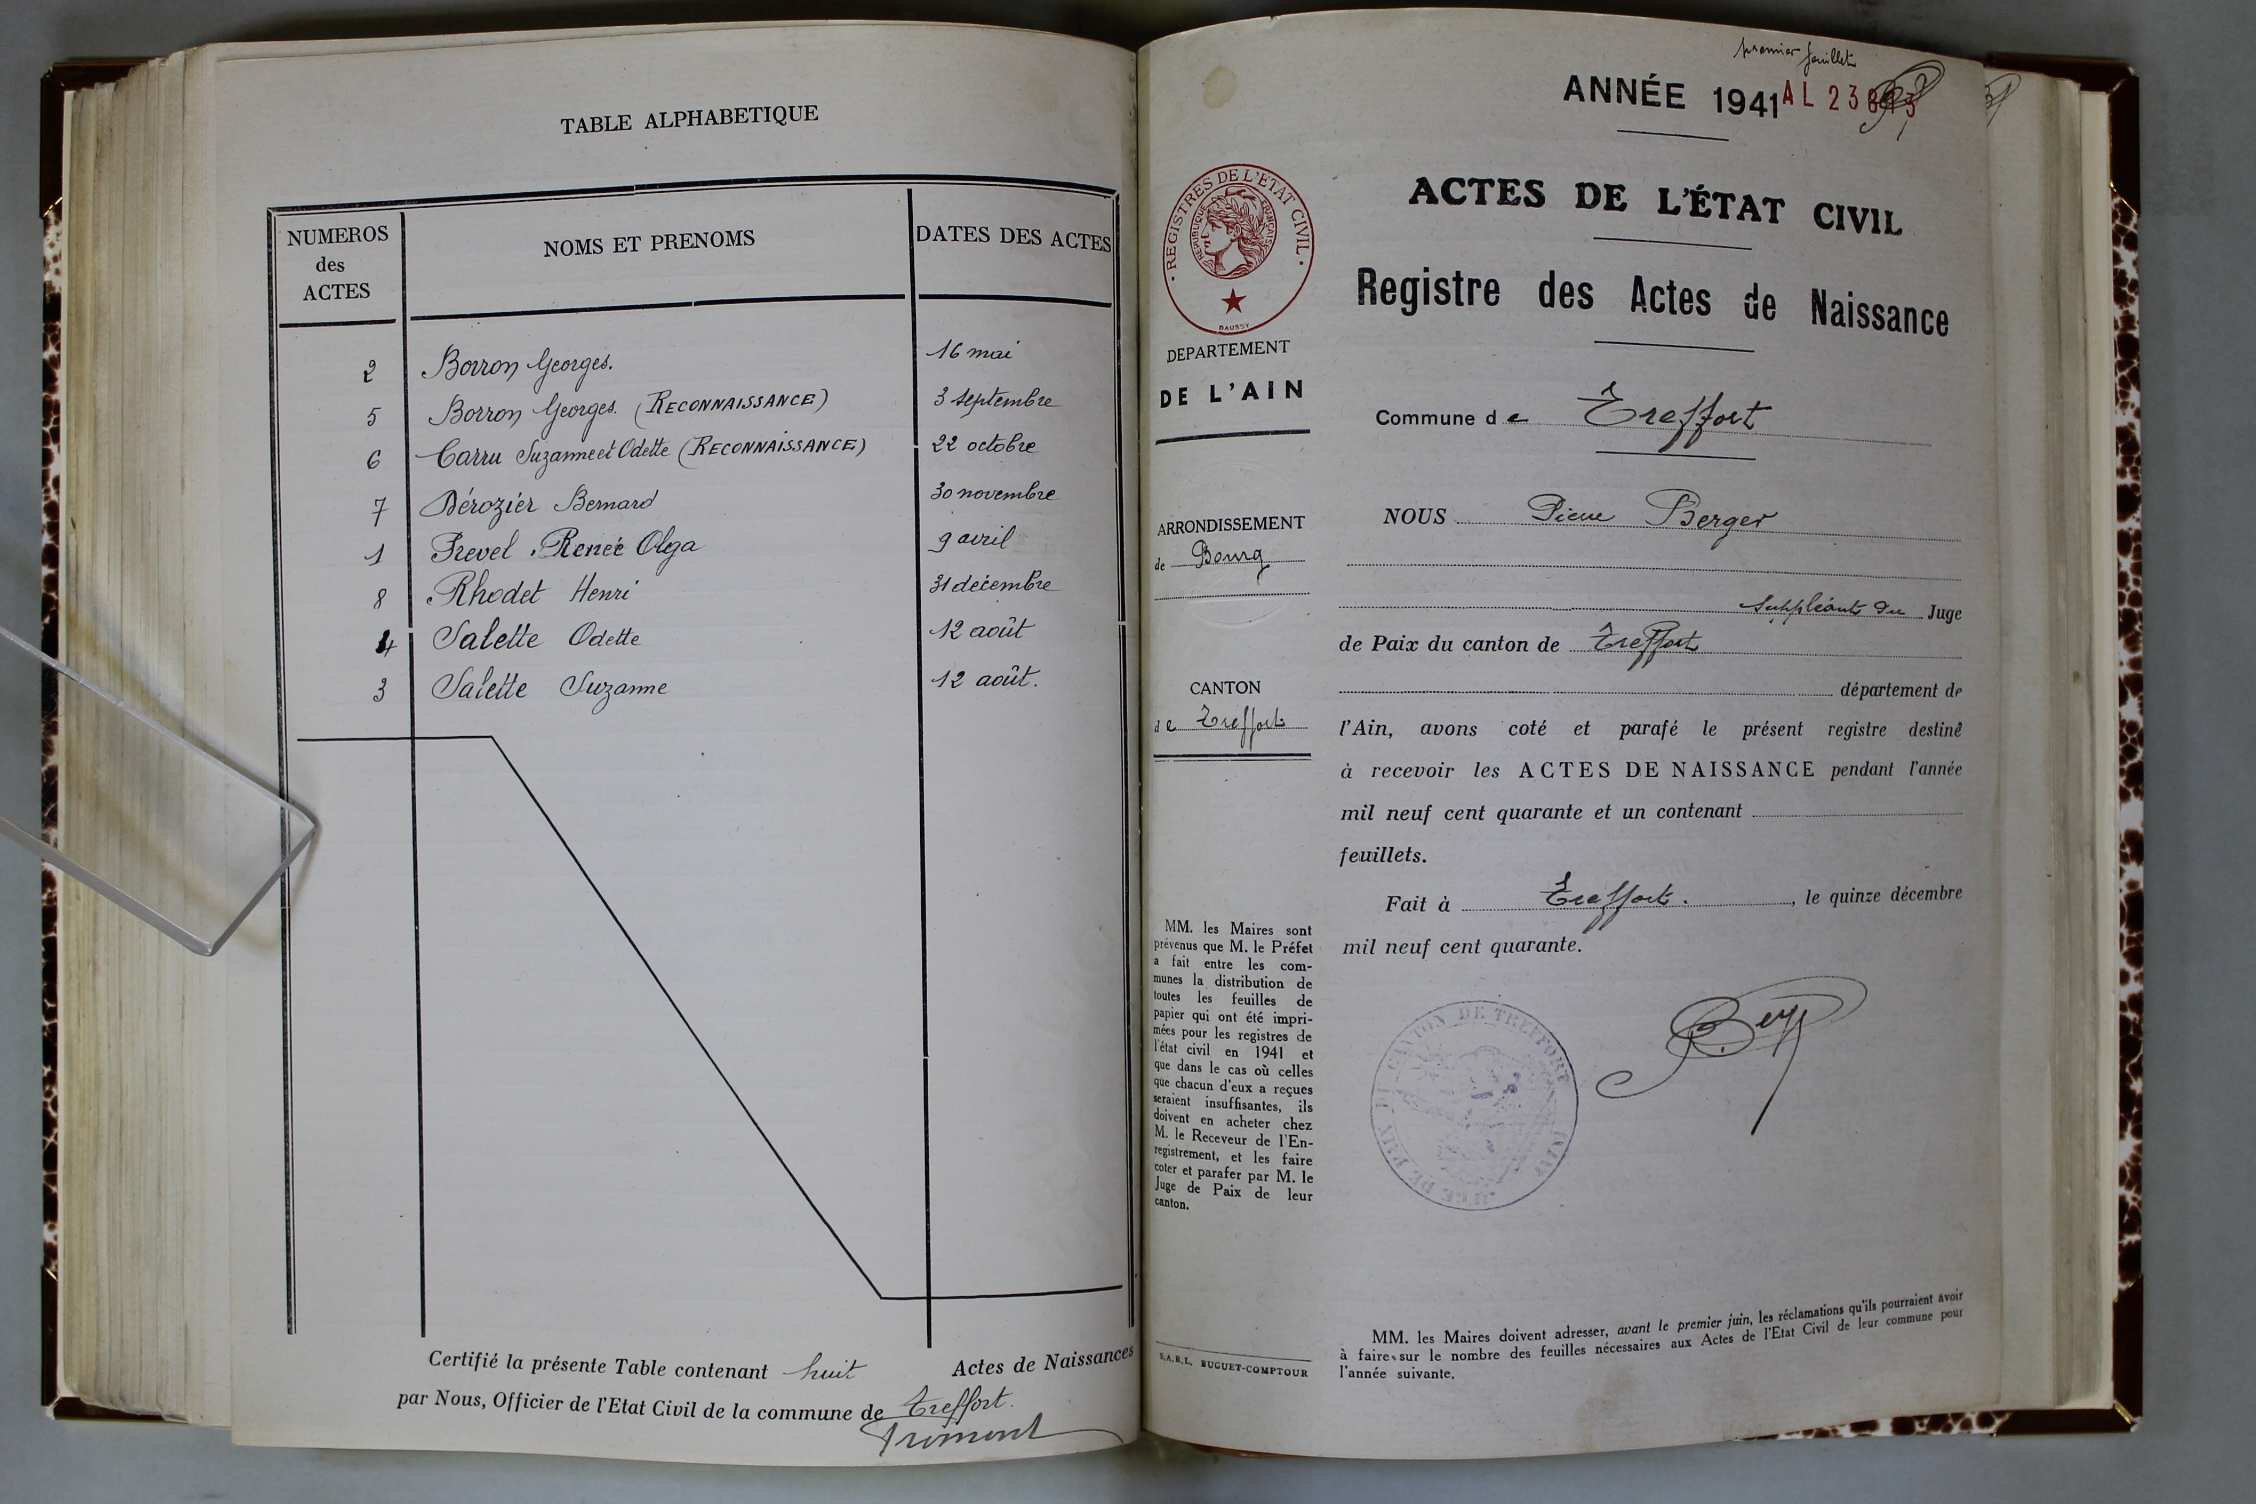 TABLE ALPHABETIQUE
NUMEROS des ACTES
NOMS ET PRENOMS
DATES DES ACTES
2 Borron Georges. 16 mai
5 Borron Georges. (RECONNAISSANCE) 3 septembre
6 Carru Suzanne et Odette (RECONNAISSANCE) 22 octobre
7 Dérozier Bernard 30 novembre
1 Prevel Renée Olga 9 avril
8 Rhodet Henri 31 décembre
4 Salette Odette 12 août
3 Salette Suzanne 12 août.
Certifié la présente Table contenant huit Actes de Naissances
par Nous, Officier de l'Etat Civil de la commune de Treffort.
premier feuillet
ANNÉE 1941
AL 23
REGISTRES DE L'ETAT CIVIL
REPUBLIQUE FRANÇAISE
DAUSSY
DEPARTEMENT
DE L'AIN
ARRONDISSEMENT
de Bourg
CANTON
de Treffort
MM. les Maires sont
prévenus que M. le Préfet
a fait entre les com-
munes la distribution de
toutes les feuilles de
papier qui ont été impri-
mées pour les registres de
l'état civil en 1941 et
que dans le cas où celles
que chacun d'eux a reçues
seraient insuffisantes, ils
doivent en acheter chez
M. le Receveur de l'En-
registrement, et les faire
coter et parafer par M. le
Juge de Paix de leur
canton.
S.A.R.L. BUGUET-COMPTOUR
ACTES DE L'ÉTAT CIVIL
Registre des Actes de Naissance
Commune de Treffort
NOUS Pierre Berger
suppléant du Juge
de Paix du canton de Treffort
département de
l'Ain, avons coté et parafé le présent registre destiné
à recevoir les ACTES DE NAISSANCE pendant l'année
mil neuf cent quarante et un contenant
feuillets.
Fait à Treffort. , le quinze décembre
mil neuf cent quarante.
JUGE DE PAIX DU CANTON DE TREFFORT (AIN)
MM. les Maires doivent adresser, avant le premier juin, les réclamations qu'ils pourraient avoir
à faire sur le nombre des feuilles nécessaires aux Actes de l'Etat Civil de leur commune pour
l'année suivante.